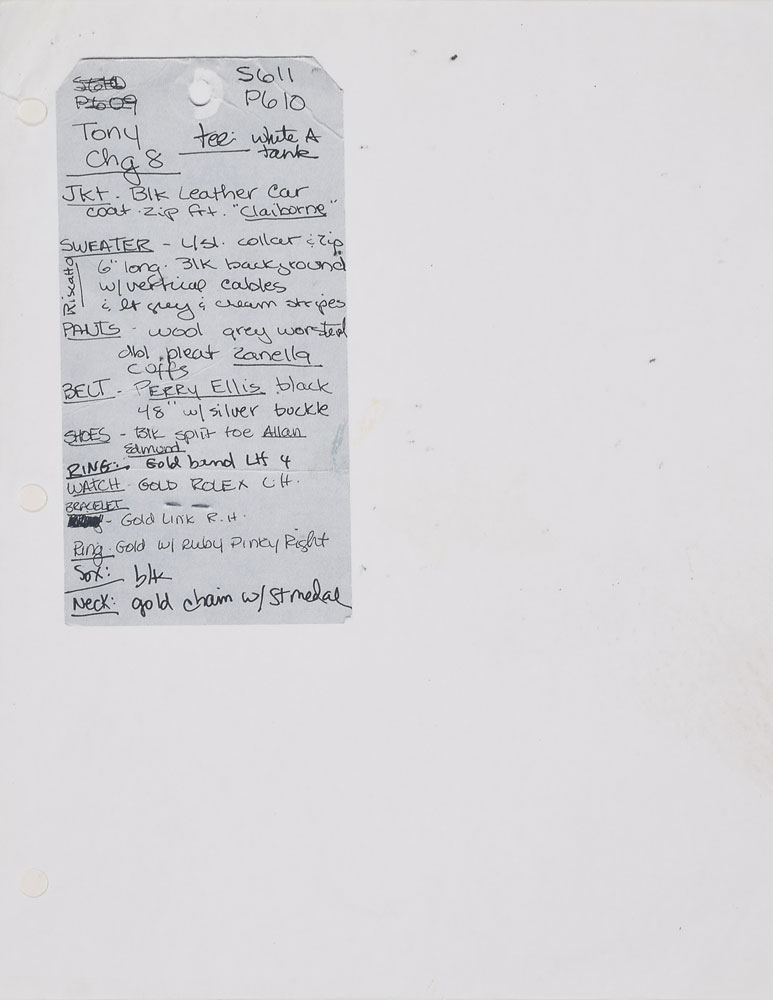 S610 S611
P609 P610
Tony tee: white A
Chg 8 tank
JKt - Blk Leather Car
coat - zip frt. "Claiborne"
SWEATER - L/sl. collar & zip
6" long. Blk background
w/ vertical cables
& lt grey & cream stripes
PANTS - wool grey worsted
dbl pleat Zanella
cuffs
BELT - PERRY Ellis black
48" w/ silver buckle
SHOES - Blk split toe Allan
Edmund
RING: Gold band LH 4
WATCH - GOLD ROLEX LH.
BRACELET
- Gold Link R.H.
Ring - Gold w/ Ruby Pinky Right
Sox: blk
Neck: gold chain w/ St medal